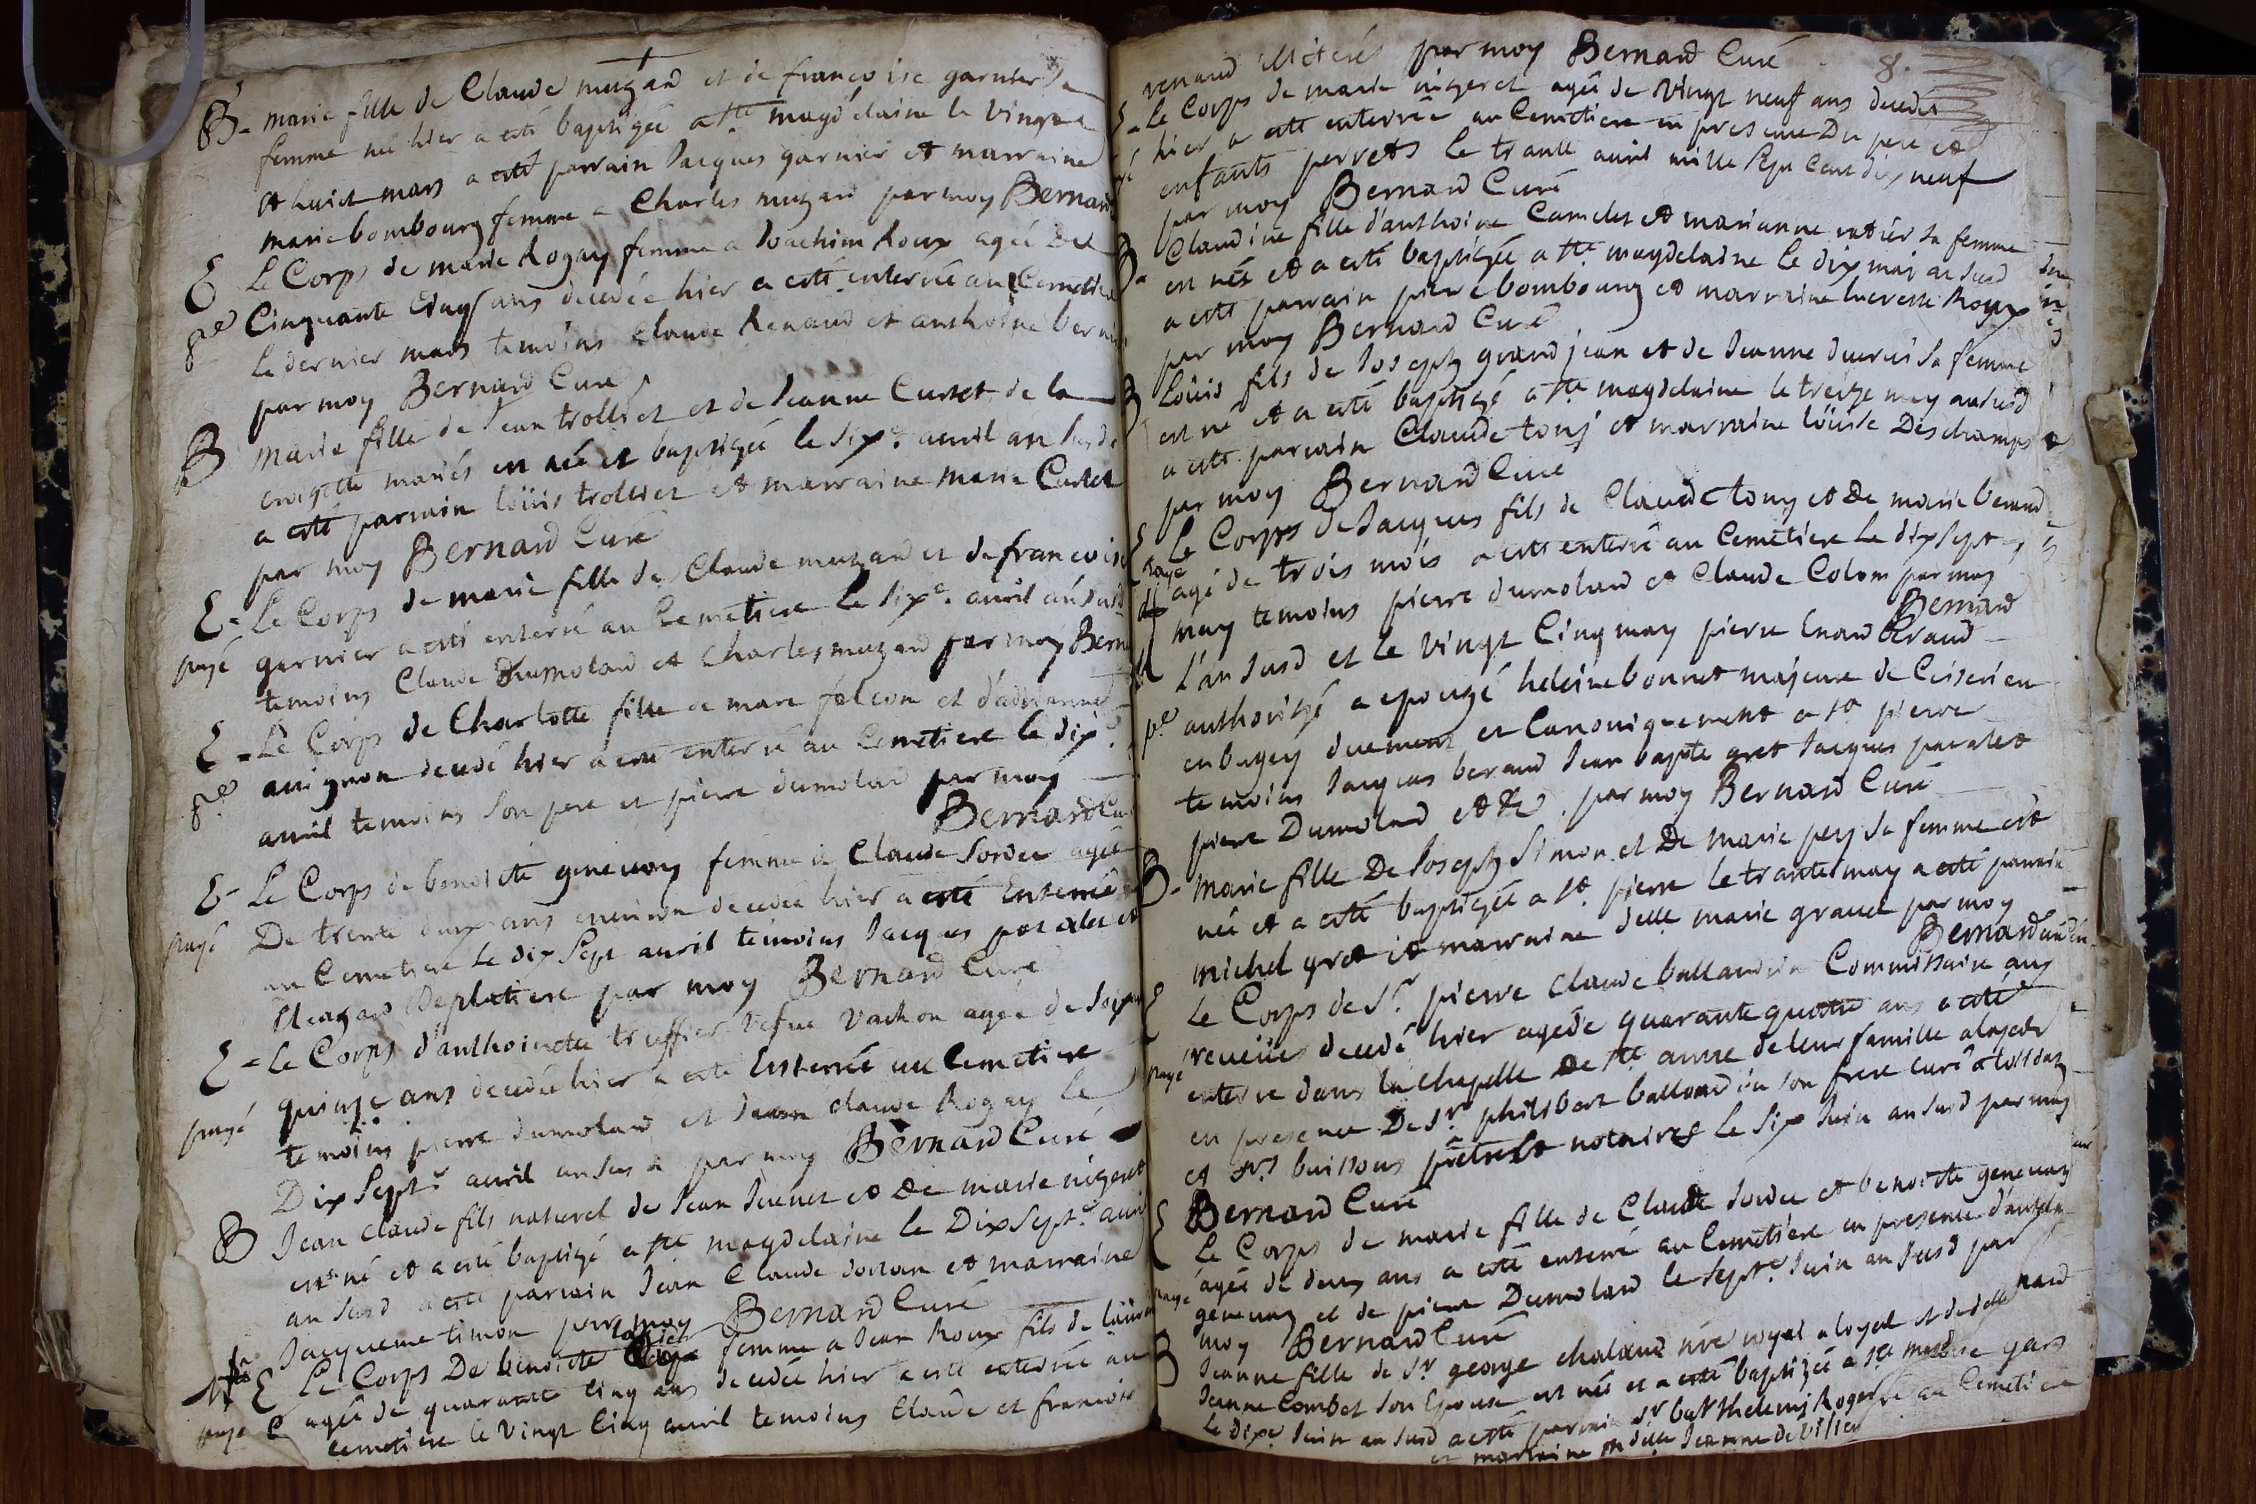 B - marie fille de Claude muzard et de francoise garnier sa
femme née hier a esté baptizée a ste magdelaine le vingt
et huict mars a esté parrain Jacques garnier et marraine
marie bombourg femme a Charles muzard par moy Bernard
E Le Corps de marie Rogay femme a Joachim Roux agée de
Cinquante Cinq ans decedée hier a esté enterrée au Cemetiere
le dernier mars temoins claude Renaud et anthoine
par moy Bernard Curé
B marie fille de Jean trolliet et de Jeanne Curtet de la
croizette mariés est née et baptizée le sixe. avril an susd
a esté parrain loüis trolliet et marraine marie Curtet
par moy Bernard Curé
E - Le Corps de marie fille de Claude muzard et de francoise
payé garnier a esté enterré au Cemetiere le sixe. avril an susd
temoins Claude Dumolard et Charles muzard par moy Bernard
E - Le Corps de Charlotte fille de marc falcon et d'adrianne
avignon decedé hier a esté enterré au Cemetiere le dixe.
avril temoins son pere et pierre dumolard par moy
Bernard Curé
E - Le Corps de benoicte genevay femme de Claude Sordee agée
payé De trente deux ans environ decedée hier a esté Enterrée
au Cemetiere le dix sept avril temoins Jacques paralet et
Eleazard Deplatiere par moy Bernard Curé
E - Le Corps d'anthoinette truffier vefue vachon agée de soixante
payé quinze ans decedée hier a esté Enterrée au Cemetiere
temoins pierre dumolard et Jean claude Rogay le
Dix septe. avril an susd par moy Bernard Curé
B Jean claude fils naturel de Jean Juenet et de marie nigeret
est né et a esté baptizé a ste magdelaine le Dix septe. avril
an susd a esté parrain Jean Claude et marraine
Jacqueme timon par moy Bernard Curé
E Le Corps De benoicte femme a Jean Roux fils de
payé agée de quarante cinq ans decedée hier a esté enterrée au
Cemetiere le vingt Cinq avril temoins Claude et francois
renaud illiterés par moy Bernard Curé 8.
E - Le Corps de marie nigeret agée de vingt neuf ans decedée
hier a esté enterrée au Cemetiere en presence Du pere et
enfants perrets le trante avril mille sept cent dix neuf
par moy Bernard Curé
B - Claudine fille d'anthoine Camelet et marianne ratier sa femme
est née et a esté baptizée a ste. magdelaine le dix mai an susd
a esté parrain pierre bombourg et marraine lucresse Roux
par moy Bernard Curé
B Loüis fils de Joseph grand jean et de Jeanne ducret sa femme
est né et a esté baptizé a ste magdelaine le treize may an susd
a esté parrain Claude tonj et marraine loüise Deschamps
par moy Bernard Curé
E Le Corps de Jacques fils de Claude tony et de marie beraud
payé agé de trois mois a esté enterré au Cemetiere Le dix sept
may temoins pierre dumolard et Claude Colom par moy
Bernard
L'an susd et le vingt Cinq may pierre Enard beraud
authorizé a epouzé heleine bonnet majeure de Ceiserieu
en bugey duement et Canoniquement a st pierre
temoins Jacques beraud Jean bapte gret Jacques paralet
pierre Dumolard et par moy Bernard Curé
B - Marie fille De Joseph Simon et De Marie pey sa femme est
née et a esté baptizée a st. pierre le trante may a esté parrain
michel gret et marraine delle marie gravel par moy
Bernard Curé
E Le Corps de Sr. pierre Claude ballandrin Commissaire aux
payé reveües decedé hier agé de quarante quatre ans a esté
enterré dans la chapelle De ste anne de leur famille
en presence De Sr. philibert ballandrin son frere curé
et Srs buissons prêtre et notaires le six Juin an susd par moy
Bernard Curé
E Le Corps de marie fille de Claude Sordee et benoicte genevay
payé agée de deux ans a esté enterré au Cemetiere en presence
genevay et de pierre Dumolard le septe. Juin an susd par
moy Bernard Curé
B Jeanne fille de Sr george chaland nre royal a loyet et de delle
Jeanne Combet son Epouse est née et a esté baptizée a ste
le dixe. Juin an susd a esté parrain Sr barthelemj Roger
et marraine delle Jeanne de vilier